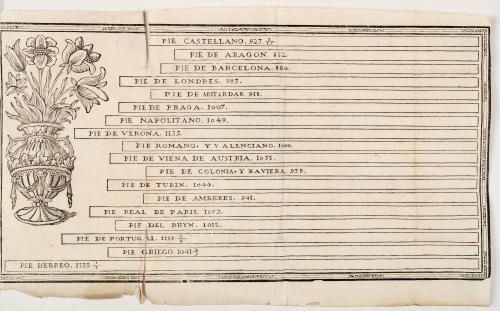 PIE CASTELLANO. 927
PIE DE ARAGON. 852.
PIE DE BARCELONA. 880.
PIE DE LONDRES. 983.
PIE DE 918.
PIE DE PRAGA. 1007.
PIE NAPOLITANO. 1049.
PIE DE VERONA. 1133.
PIE ROMANO, Y VALENCIANO. 1000.
PIE DE VIENA DE AUSTRIA. 1055.
PIE DE COLONIA, Y BAVIERA. 938.
PIE DE TURIN. 1044.
PIE DE AMBERES. 941.
PIE REAL DE PARIS. 1092.
PIE DEL RHYN. 1015.
PIE DE PORTUGAL. 1133
PIE GRIEGO. 1041
PIE HEBREO. 1333